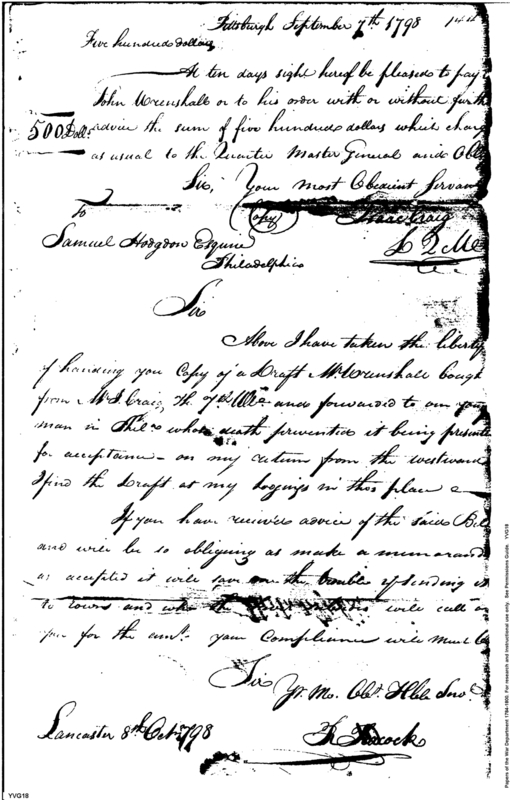 Pittsburgh September 7th 1798
Five hundred dollars
At ten days sight hereof be pleased to pay
John Wrenshall or to his order with or without furth
500 Doll.s
advice the sum of five hundred dollars which charg
as usual to the Quarter Master General and Obl
Sir, Your most Obedient Servan
To
(Copy)
Isaac Craig
Samuel Hodgdon Esquire
D Q M G
Philadelphia
Sir
Above I have taken the liberty
of handing you Copy of a Draft Mr Wrenshall bough
from Mr I. Craig, the 7th Ulto and forwarded to
man in Phila whose death prevented it being presente
for acceptance - on my return from the westward
I find the Draft at my lodgings in this place
If you have received advice of the said Bil
and will be so obliging as make a memorand
as accepted it will save me the trouble of sending it
to town and will call on
you for the amt. your Compliance will much
Sir
Yr. Mo. Obt. Hble Servt.
Lancaster 8th Oct 1798
YVG18
Papers of the War Department 1784-1800. For research and instructional use only. See Permissions Guide. YVG18